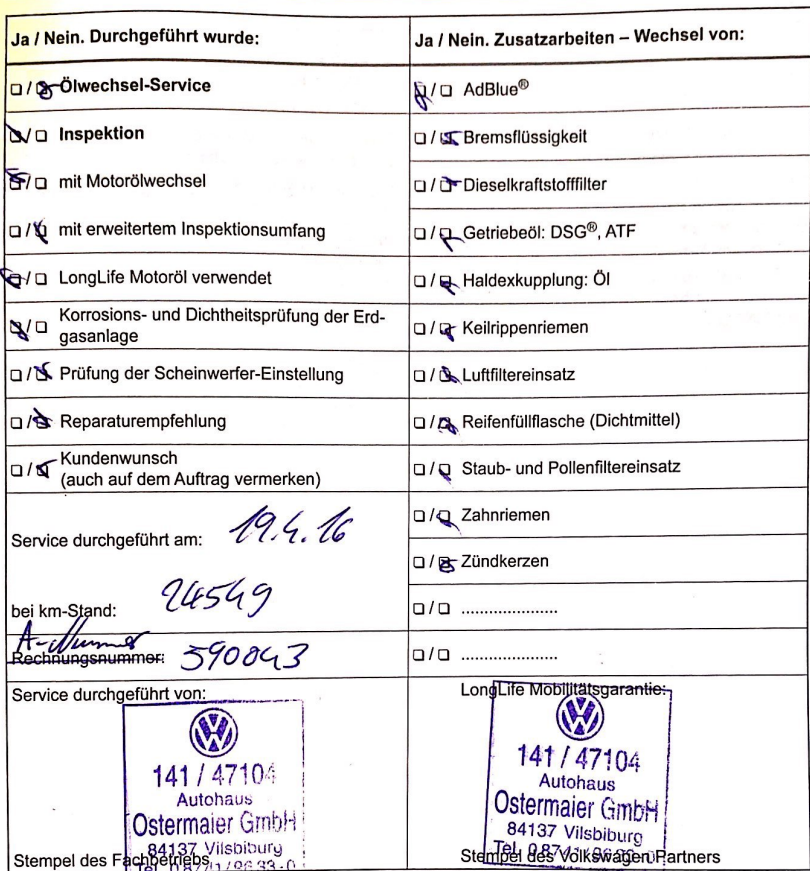 Ja / Nein. Durchgeführt wurde:
❑ / ❑ Ölwechsel-Service
❑ / ❑ Inspektion
❑ / ❑ mit Motorölwechsel
❑ / ❑ mit erweitertem Inspektionsumfang
❑ / ❑ LongLife Motoröl verwendet
❑ / ❑ Korrosions- und Dichtheitsprüfung der Erd-
gasanlage
❑ / ❑ Prüfung der Scheinwerfer-Einstellung
❑ / ❑ Reparaturempfehlung
❑ / ❑ Kundenwunsch
(auch auf dem Auftrag vermerken)
Service durchgeführt am: 19.4.16
bei km-Stand: 24549
A-Nummer
Rechnungsnummer: 590043
Service durchgeführt von:
141 / 47104
Autohaus
Ostermaier GmbH
84137 Vilsbiburg
Tel. 08741/9633-0
Stempel des Fachbetriebs
Ja / Nein. Zusatzarbeiten – Wechsel von:
❑ / ❑ AdBlue®
❑ / ❑ Bremsflüssigkeit
❑ / ❑ Dieselkraftstofffilter
❑ / ❑ Getriebeöl: DSG®, ATF
❑ / ❑ Haldexkupplung: Öl
❑ / ❑ Keilrippenriemen
❑ / ❑ Luftfiltereinsatz
❑ / ❑ Reifenfüllflasche (Dichtmittel)
❑ / ❑ Staub- und Pollenfiltereinsatz
❑ / ❑ Zahnriemen
❑ / ❑ Zündkerzen
❑ / ❑ .....................
❑ / ❑ .....................
LongLife Mobilitätsgarantie:
141 / 47104
Autohaus
Ostermaier GmbH
84137 Vilsbiburg
Tel.
Stempel des Volkswagen Partners